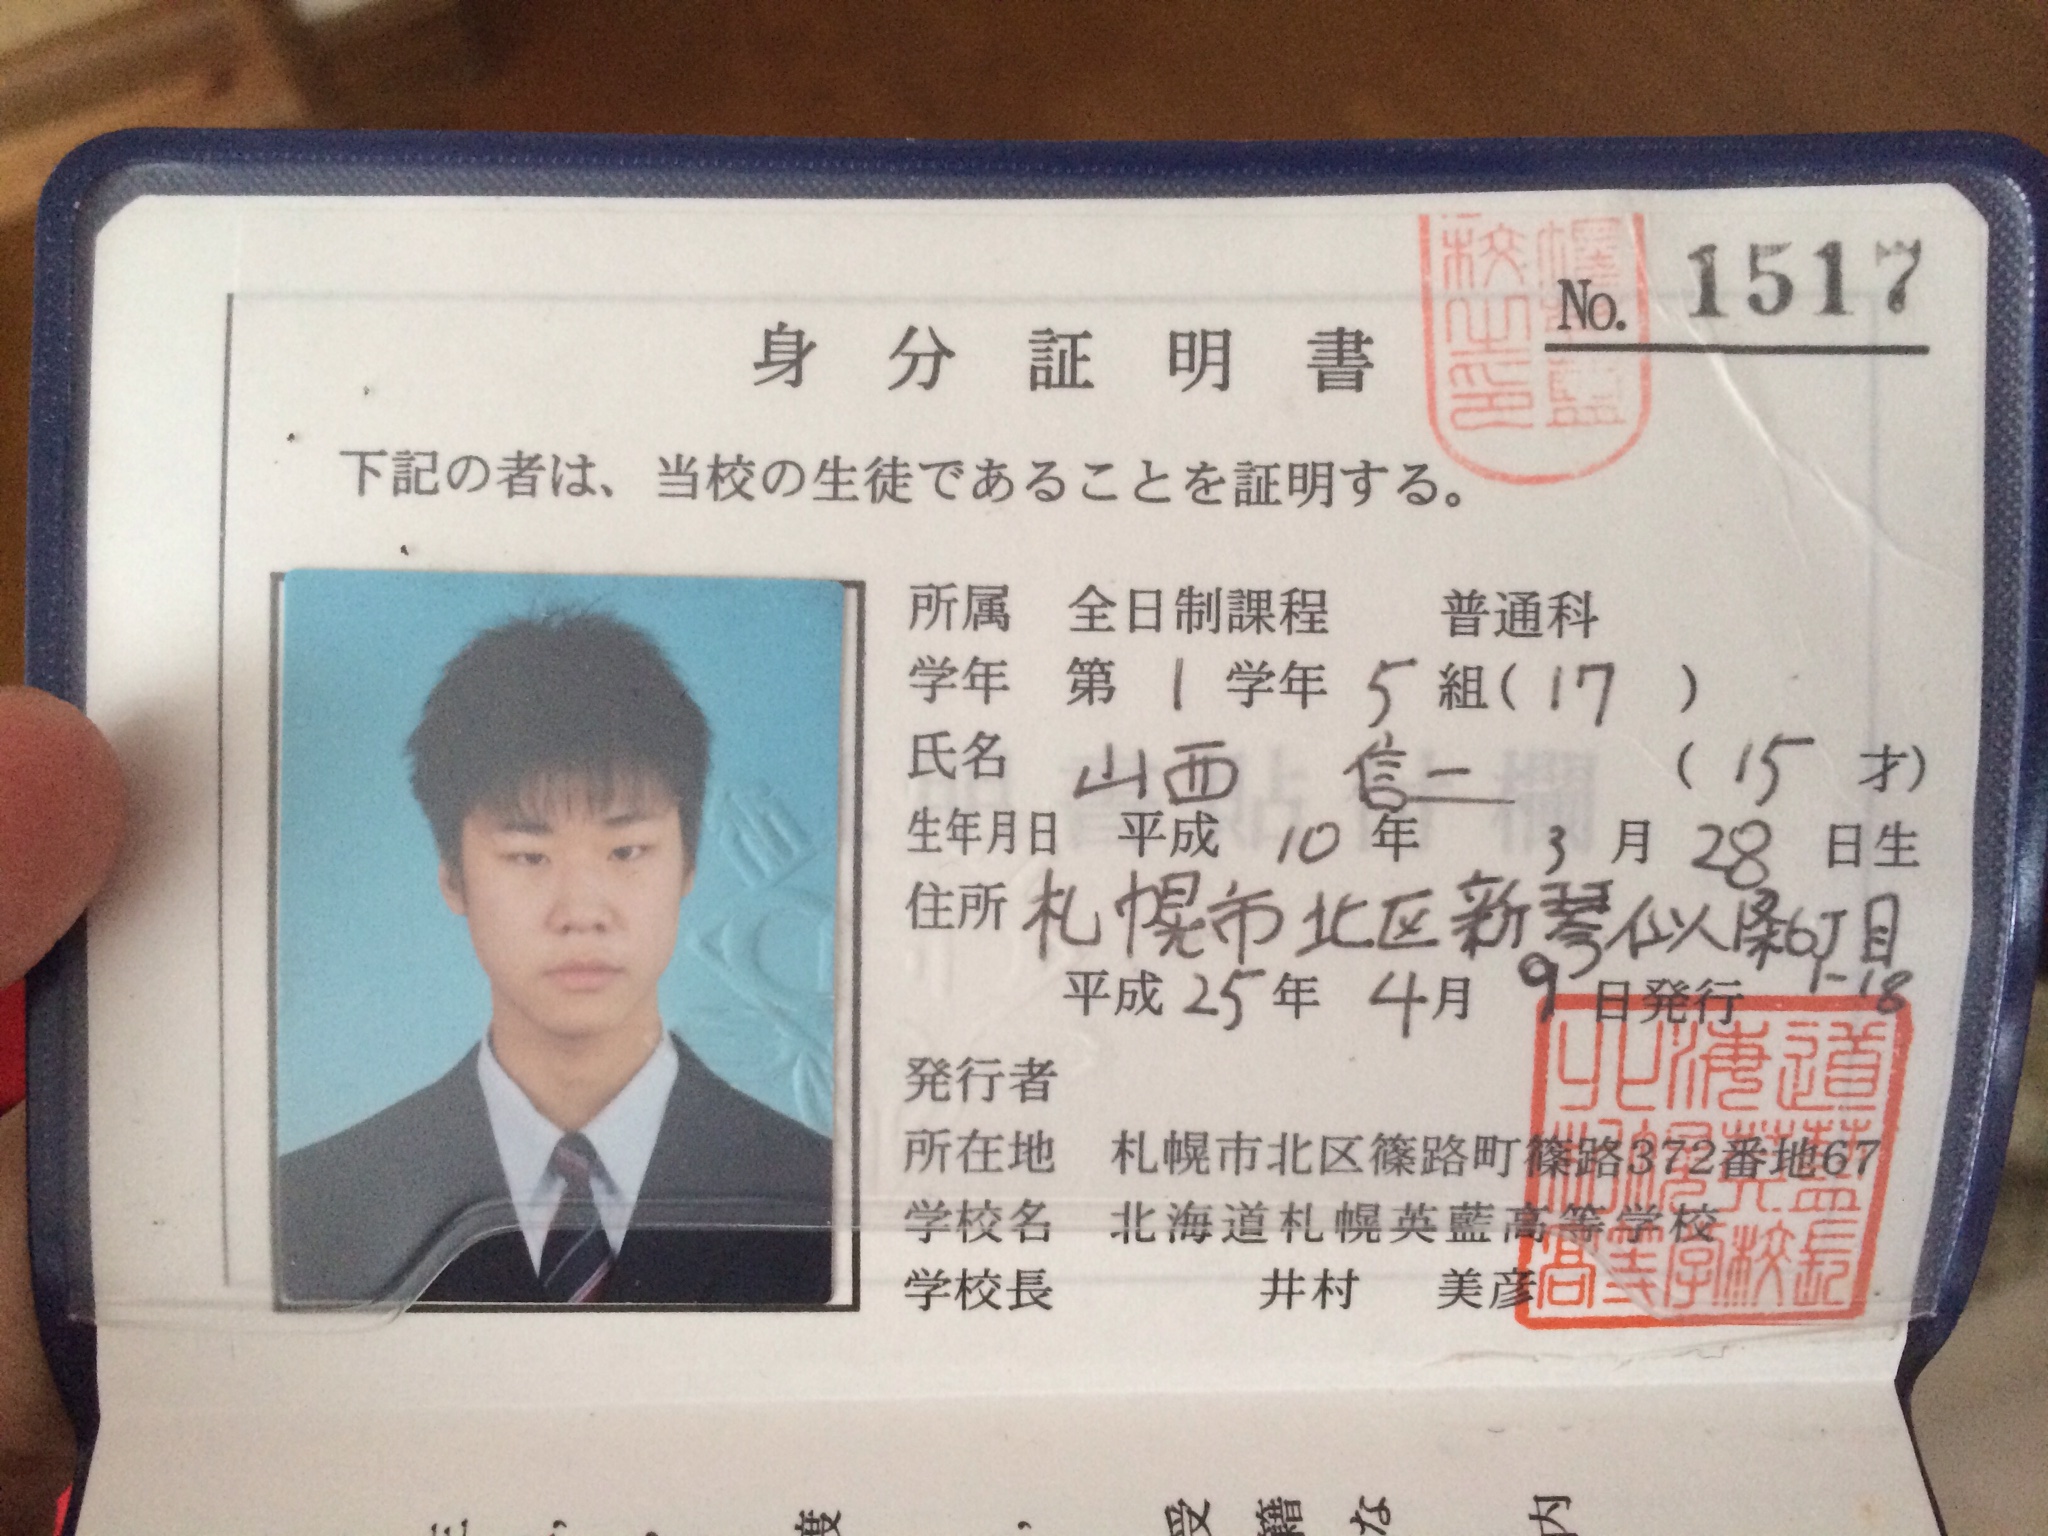 No. 1517
身分証明書
下記の者は、当校の生徒であることを証明する。
所属 全日制課程 普通科
学年 第 1 学年 5 組( 17 )
氏名 山西 信二 ( 15 才)
生年月日 平成 10 年 3 月 28 日生
住所 札幌市北区新琴似 条6丁目
1-18
平成 25 年 4 月 9 日発行
発行者
所在地 札幌市北区篠路町篠路372番地67
学校名 北海道札幌英藍高等学校
学校長 井村 美彦
北海道札幌英藍高等学校長
度 受 籍 な 内